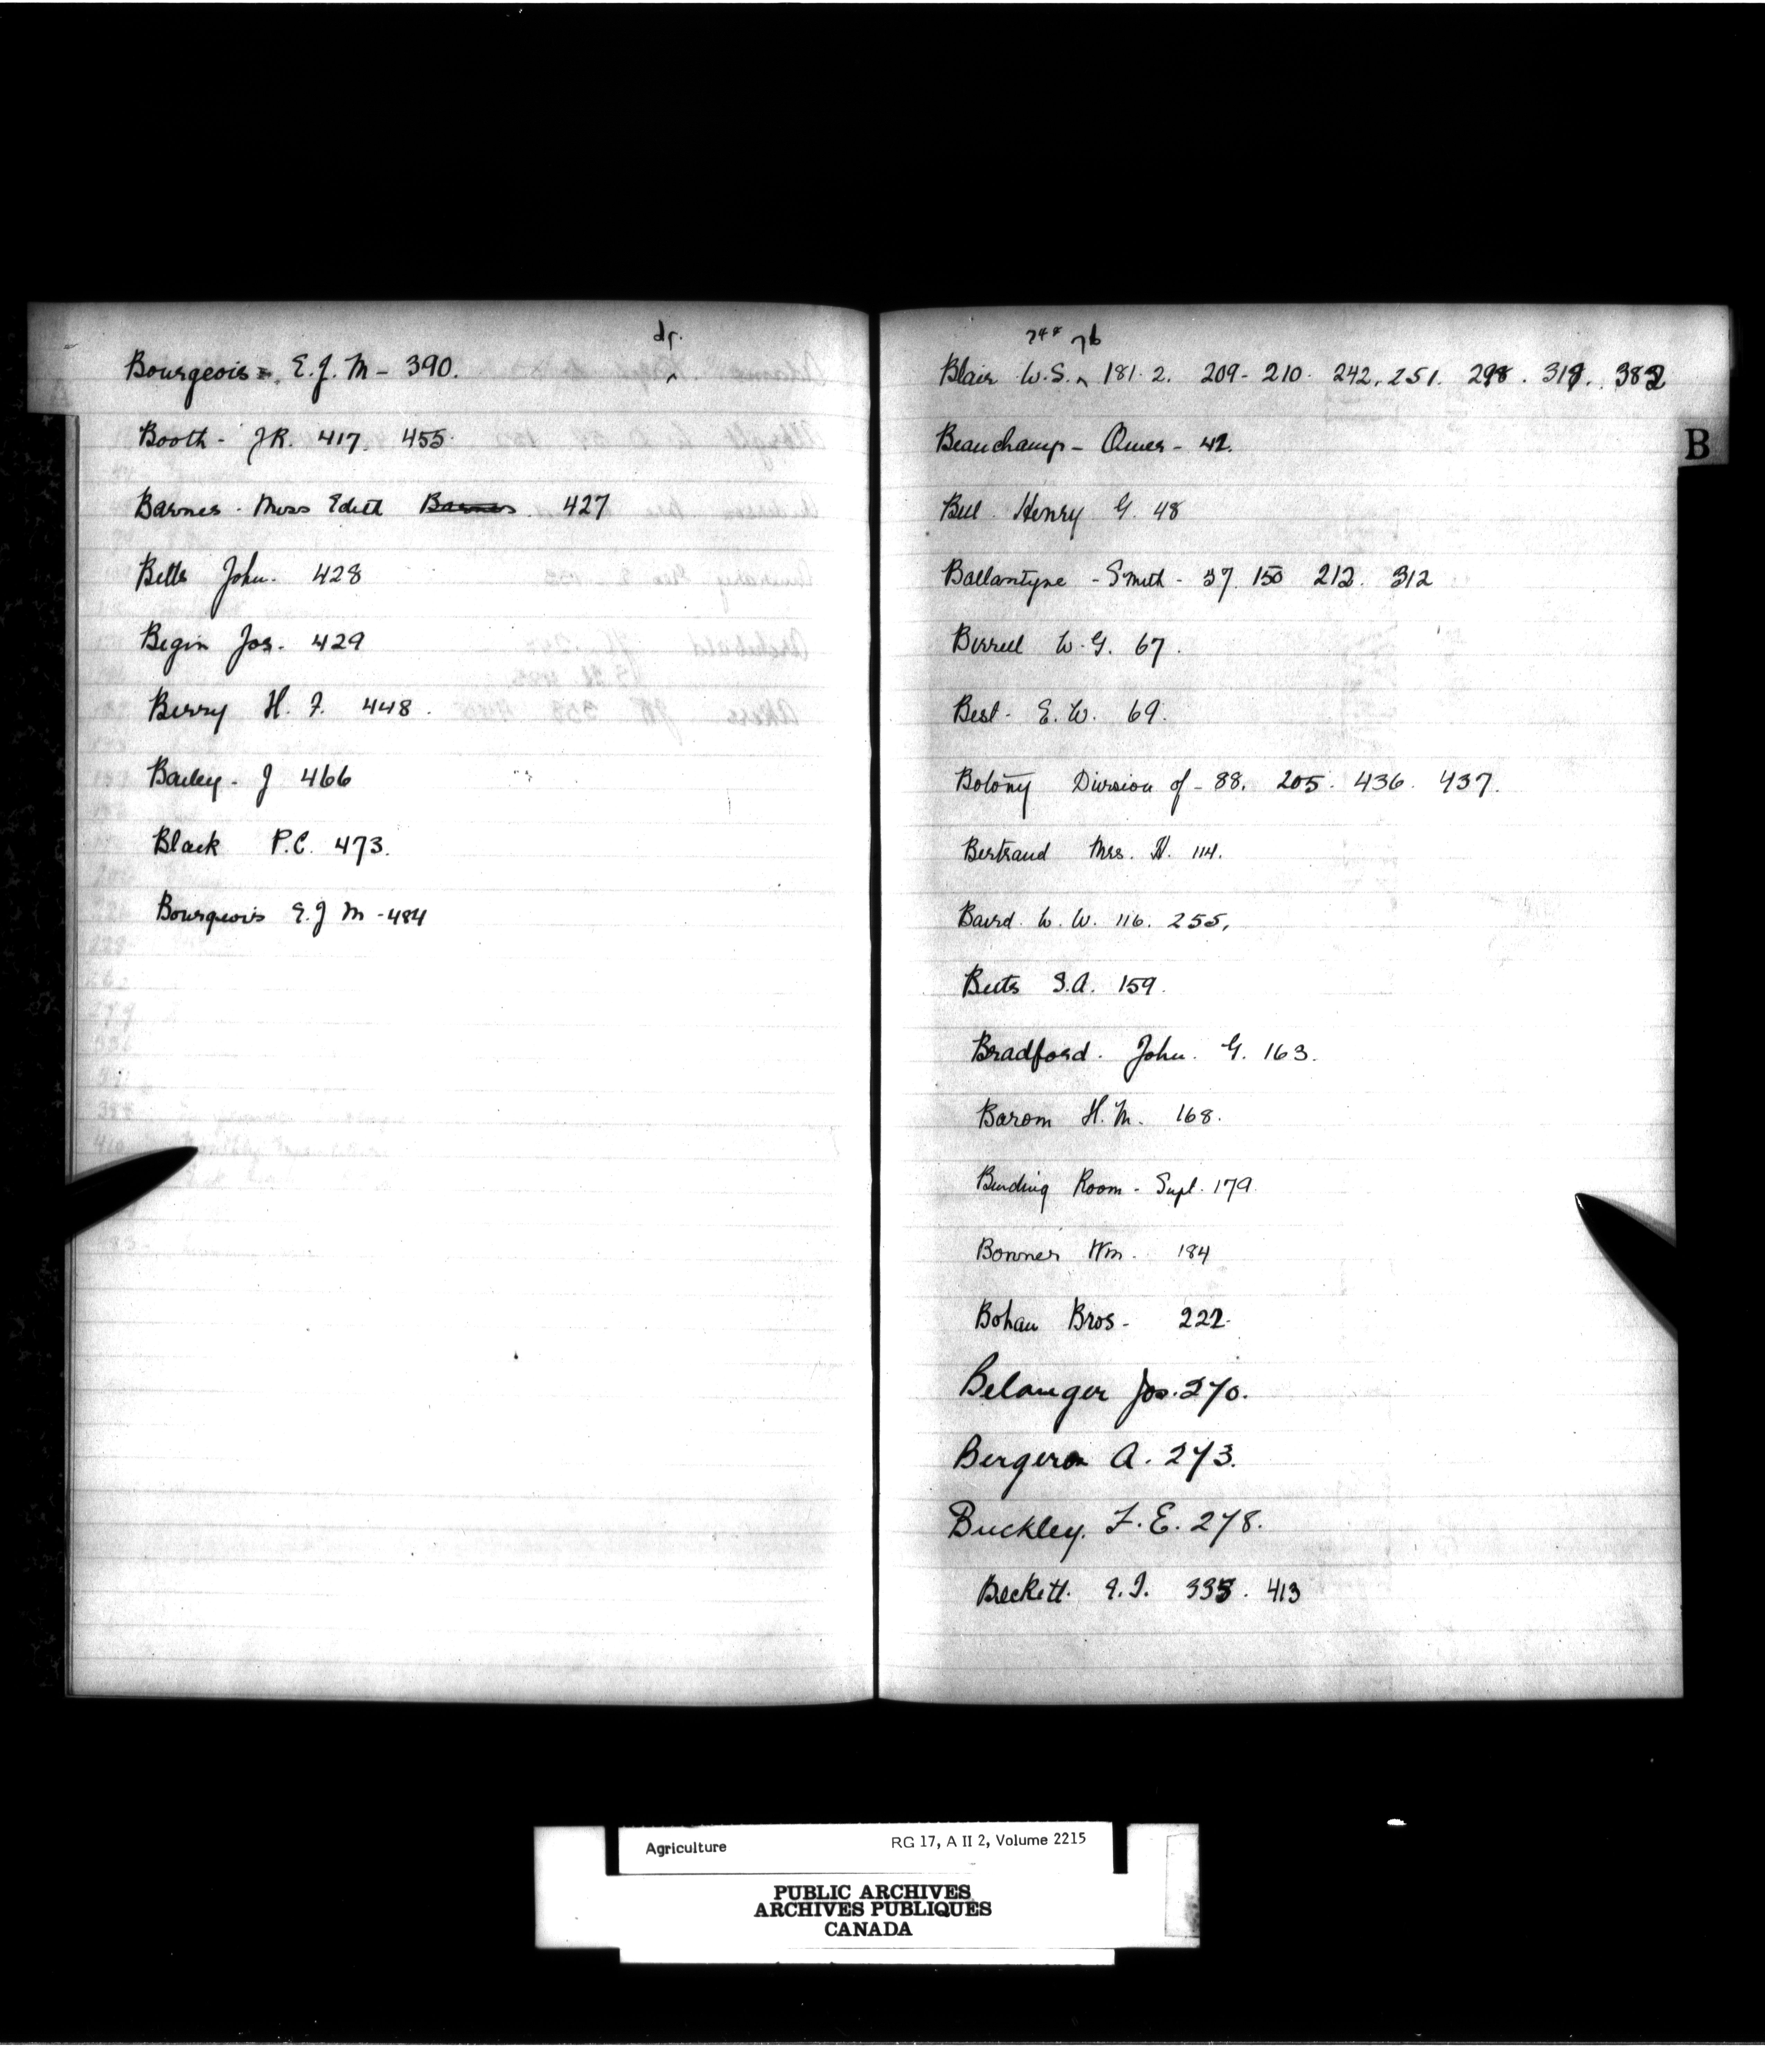 Bourgeois - E.J.M - 390.
Booth - J.R. 417. 455.
Barnes - Miss Edith Barnes 427
Betts John. 428
Begin Jos. 429
Berry H. F. 448.
Bailey - J 466
Black P.C. 473.
Bourgeois E.J M - 484
76
Blair W.S. ^ 181. 2. 209 - 210. 242. 251. 298. 319. 382
B
Beauchamp - Omer - 42.
Bell Henry G. 48
Ballantyne - Smith - 37. 150 212. 312
Birrell W.G. 67.
Best - E.W. 69.
Botany Division of - 88. 205. 436. 437.
Bertrand Mrs. H. 114.
Baird. W. W. 116. 255.
Beets S.A. 159.
Bradford. John. G. 163.
Barom H.M. 168.
Binding Room - Supt. 179.
Bonner Wm. 184
Bohan Bros - 222.
Belanger Jos. 270.
Bergeron A. 273.
Buckley. F. E. 278.
Beckett. 335. 413
Agriculture RG 17, A II 2, Volume 2215
PUBLIC ARCHIVES
ARCHIVES PUBLIQUES
CANADA